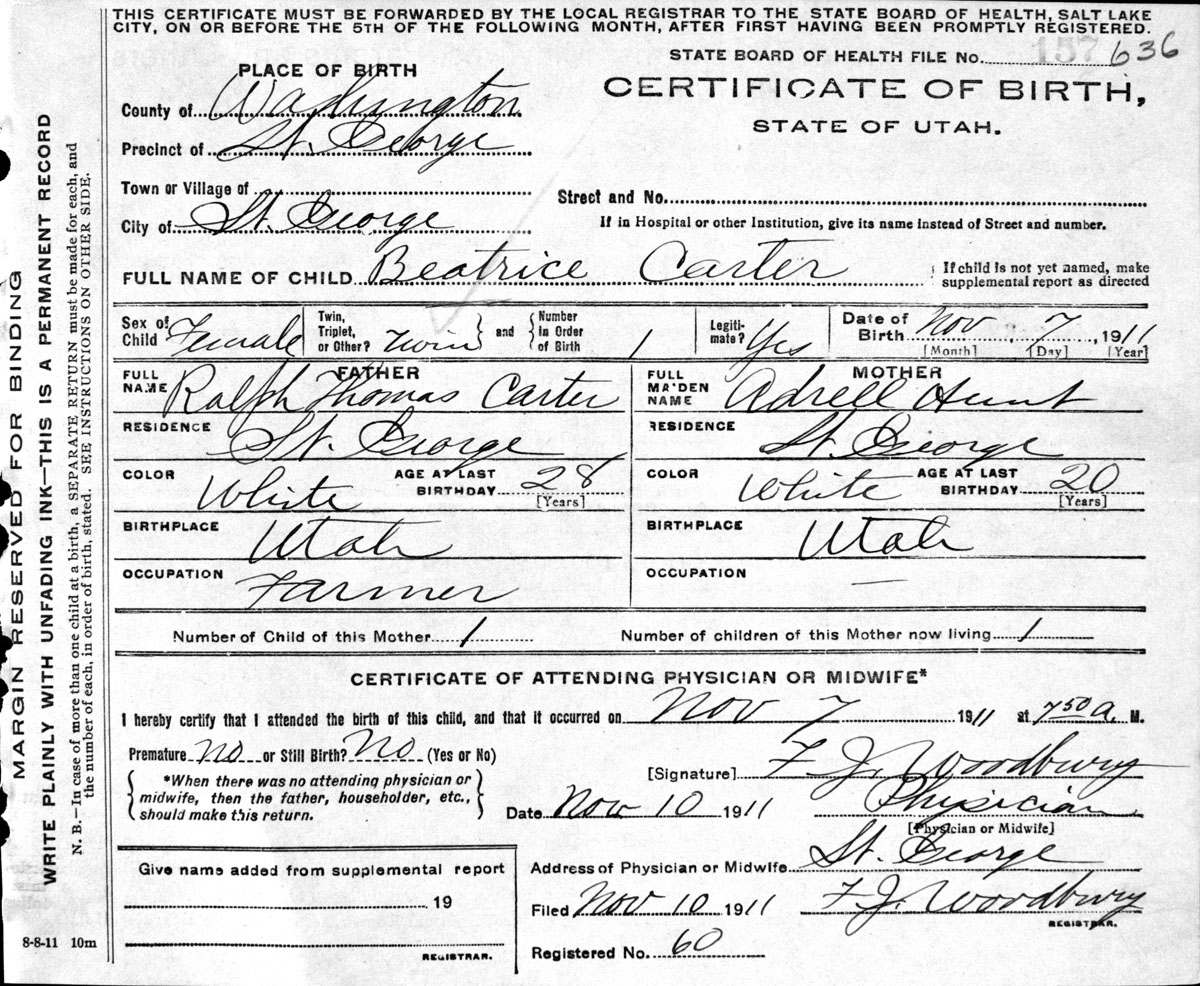 THIS CERTIFICATE MUST BE FORWARDED BY THE LOCAL REGISTRAR TO THE STATE BOARD OF HEALTH, SALT LAKE
CITY, ON OR BEFORE THE 5TH OF THE FOLLOWING MONTH, AFTER FIRST HAVING BEEN PROMPTLY REGISTERED.
STATE BOARD OF HEALTH FILE No. 157 636
PLACE OF BIRTH
CERTIFICATE OF BIRTH,
STATE OF UTAH.
County of Washington
Precinct of St. George
Town or Village of
Street and No.
City of St. George
If in Hospital or other Institution, give its name instead of Street and number.
FULL NAME OF CHILD Beatrice Carter
If child is not yet named, make
supplemental report as directed
Sex of Child Female
Twin, Triplet, or Other? Twin and Number In Order of Birth 1
Legiti-mate? Yes
Date of Birth Nov 7, 1911
[Month] [Day] [Year]
FATHER
FULL NAME Ralph Thomas Carter
RESIDENCE St. George
COLOR White AGE AT LAST BIRTHDAY 28
[Years]
BIRTHPLACE Utah
OCCUPATION Farmer
MOTHER
FULL MAIDEN NAME Adrell Hunt
RESIDENCE St. George
COLOR White AGE AT LAST BIRTHDAY 20
[Years]
BIRTHPLACE Utah
OCCUPATION —
Number of Child of this Mother 1 Number of children of this Mother now living 1
CERTIFICATE OF ATTENDING PHYSICIAN OR MIDWIFE*
I hereby certify that I attended the birth of this child, and that it occurred on Nov 7 1911 at 7 50 a. M.
Premature No or Still Birth? No (Yes or No)
[Signature] F. J. Woodbury
*When there was no attending physician or
midwife, then the father, householder, etc.,
should make this return.
Date Nov 10 1911 Physician
[Physician or Midwife]
Address of Physician or Midwife St. George
Filed Nov 10 1911 F. J. Woodbury
REGISTRAR.
Registered No. 60
Give name added from supplemental report
19
REGISTRAR.
8-8-11 10m
MARGIN RESERVED FOR BINDING
WRITE PLAINLY WITH UNFADING INK—THIS IS A PERMANENT RECORD
N. B.—In case of more than one child at a birth, a SEPARATE RETURN must be made for each, and
the number of each, in order of birth, stated. SEE INSTRUCTIONS ON OTHER SIDE.